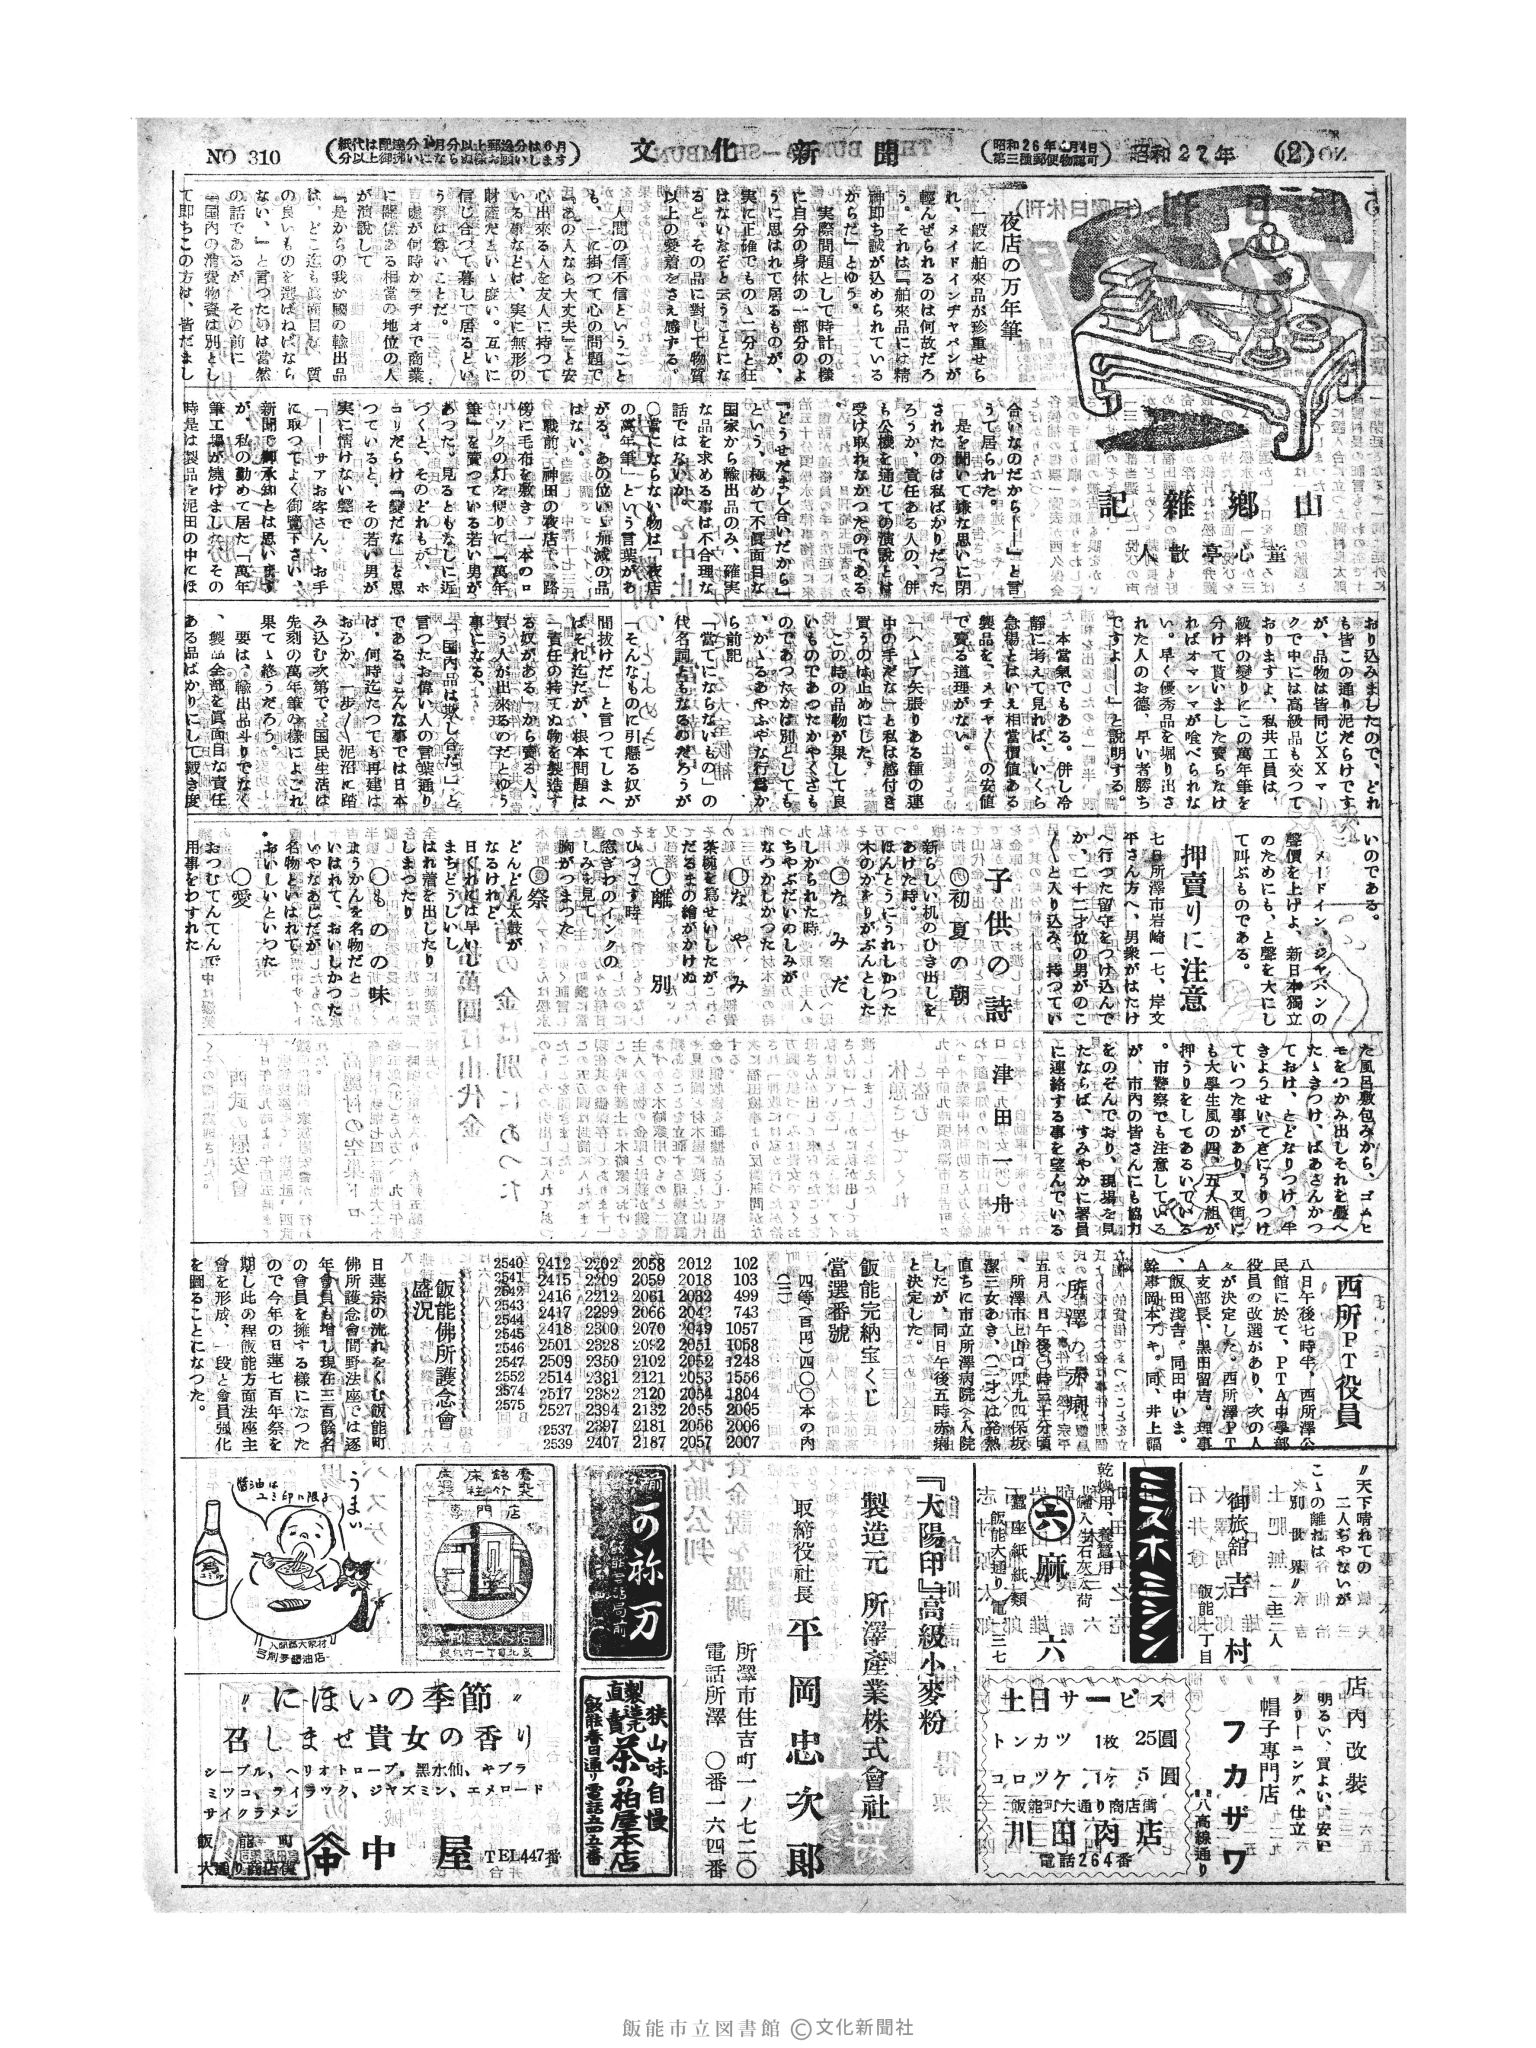 NO 310
(紙代は配達分1月分以上郵送分は6月
分以上御拂いにならぬ様お願いします)
文化新聞
昭和27年
(2)
山郷雑記
童心亭散人
夜店の万年筆
一般に舶來品が珍重せら
れ、メイドインヂャパンが
輕んぜられるのは何故だろ
う。それは『舶來品には精
神即ち誠が込められている
からだ』とゆう。
実際問題として時計の樣
に自分の身体の一部分のよ
うに思はれて居るものが、
実に正確でもの、二分と狂
はないなぞと云うことにな
ると、その品に對して物質
以上の愛着をさえ感する。
人間の信不信ということ
も、一に掛つて心の問題で
『あの人なら大丈夫』と安
心出來る人を友人に持つて
いる事などは、実に無形の
財産だといゝ度い。互いに
信じ合つて暮して居るとい
う事は尊いことだ。
吉處が何時かラヂオで商業
に關係ある相當の地位の人
が演説して
『是からの我か國の輸出品
は、どこ迄も眞面目な、質
の良いものを選はねばなら
ない、』と言つたのは當然
の話であるが、その前に
『國内の消費物資は別とし
て即ちこの方は、皆だまし
合いなのだから——』と言
うて居られた。
是を聞いて嫌な思いに閉
されたのは私ばかりだつた
ろうか、責任ある人の、併
も公機を通じての演説とは
受け取れなかつたのである
。
『どうせだまし合いだから』
という、極めて不眞面目な
国家から輸出品のみ、確実
な品を求める事は不合理な
話ではないか。
〇當にならない物は「夜店
の萬年筆」という言葉があ
がる。あの位いゝ加減の品
はない。
戰前、神田の夜店で、路
傍に毛布を敷き、一本のロ
ーソクの灯を便りに『萬年
筆』を賣つている若い男が
あつた。見るともなしに近
づくと、そのどれもが、ホ
コリだらけ『變だな』と思
つていると、その若い男が
実に情けない聲で
「——サアお客さん、お手
に取つてよく御覽下さい、
新聞で御承知とは思います
が、私の勤めて居た「萬年
筆工場が燒けまして、その
時是は製品を泥田の中にほ
おり込みましたので、どれ
も皆この通り泥だらけです
が、品物は皆同じXXマー
クで中には高級品も交つて
おりますよ、私共工員は、
級料の變りにこの萬年筆を
分けて貰いました賣らなけ
ればオマンマが喰べられな
い。早く優秀品を堀り出さ
れた人のお德、早い者勝ち
ですよ——」と説明する。
本當氣でもある。併し冷
靜に考えて見れば、いくら
急場とはいえ相當價値ある
製品を、メチャ〱の安値
で賣る道理がない。
「ハゝア矢張りある種の連
中の手だな」と私は感付き
買うのは止めにした。
この時の品物が果して良
いものであつたかやくざも
のであつたかは別としても
、かゝるあやふやな行爲か
ら前記
「當てにならないもの」の
代名詞ともなるのだろうが
、
「そんなものに引懸る奴が
間抜けだ」と言つてしまへ
ばそれ迄だが、根本問題は
「責任の持てぬ物を製造す
る奴がある」から賣る人、
買う人が出來るのだとゆう
事になる。
「國内品は欺し合だ」と
言つたお偉い人の言葉通り
である。こんな事では日本
は、何時迄たつても再建は
おろか、一步〱泥沼に踏
み込む次第で、国民生活は
先刻の萬年筆の樣によごれ
果てゝ終うだろう。
要は、輸出品斗りでなく
、製品全部を眞面目な責任
ある品ばかりにして戴き度
いのである。
メードイン、ジャパンの
聲價を上げよ、新日本獨立
のためにも、と聲を大にし
て叫ぶものである。
押賣りに注意
七日所澤市岩崎一七、岸文
平さん方へ、男衆がはたけ
へ行つた留守をつけ込んで
か、二十二才位の男がのこ
〱と入り込み、持つてい
た風呂敷包みから、ゴムヒ
モをつかみ出しそれを疊へ
たゝきつけ、ばあさんかつ
ておけ、とどなりつけ、半
きようせいてきにうりつけ
ていつた事があり、又街に
も大學生風の四、五人組が
押うりをしてあるいている
。市警察でも注意している
が、市内の皆さんにも協力
をのぞんでおり、現場を見
たならば、すみやかに署員
に連絡する事を望んでいる
子供の詩
津田一舟
〇初夏の朝
新らしい机のひき出しを
あけた時、
ほんとうにうれしかつた
木のかをりがぷんとした
〇なみだ
しかられた時
ちやぶだいのしみが
なつかしかつた
〇なやみ
茶椀を寫せいしたが
だるまの繪がかけぬ
〇離別
ひつこす時
窓ぎわのインクの
しみを見て
胸がつまつた
〇祭
どんどん太鼓が
なるけれど、
日ぐれには早い
まちどうしいし
はれ着を出したり
しまつたり
〇もの味
ようかんを名物だと
いはれて、おいしかつた
いやなあじだが
名物といはれて
おいしいといつた
〇愛
おつむてんてんで
用事をわすれた
西所PT役員
八日午後七時半、西所澤公
民館に於て、PTA中學部
役員の改選があり、次の人
々が決定した。西所澤PT
A支部長、黑田留吉。理事
、飯田淺吉。同田中いま。
幹事岡本アキ。同、井上謳
所澤の赤痢
五月八日午後〇時三十分頃
、所澤市上山口四九四保坂
潔三女あき、(二才)は発熱
直ちに市立所澤病院へ入院
したが、同日午後五時赤痢
と決定した。
飯能完納宝くじ
當選番號
四等(百円)四〇〇本の内
(三)
102 103 499 743 1057 1058 1248 1556 1804 2005 2006 2007
2012 2018 2032 2042 2049 2051 2052 2053 2054 2055 2056 2057
2058 2059 2061 2066 2070 2092 2102 2121 2120 2132 2181 2187
2202 2209 2212 2299 2300 2328 2350 2381 2382 2394 2397 2407
2412 2415 2416 2417 2418 2501 2509 2514 2517 2527 2537 2539
2540 2541 2542 2543 2544 2545 2546 2547 2552 2574 2575
飯能佛所護念會
盛況
日蓮宗の流れをくむ飯能町
佛所護念會間野法座では逐
年會員も增し現在三百餘名
の會員を擁する樣になつた
ので今年の日蓮七百年祭を
期し此の程飯能方面法座主
會を形成、一段と會員强化
を圖ることになつた。
〃天下晴れての
二人ぢやないが
こゝの離れは
別世界〃
御旅館 吉村
飯能一丁目
ミスホミシン
乾燥用、養蠶用
罐入生石灰入荷
蠶座紙紙類
㊅ 麻六
飯能大通り 電一三七
店内改装
明るい、買よい、安い
クリーニング、仕立
帽子専門店
フカザワ
八高線通り
土日サービス
トンカツ 1枚 25圓
コロツケ 1ケ 5圓
飯能町大通り商店街
川田肉店
電話264番
『大陽印』高級小麥粉
製造元 所澤產業株式會社
取締役社長 平岡忠次郎
所澤市住吉町一ノ七二〇
電話所澤 〇番一六四番
の祢万
狭山味自慢
製造元
直賣
茶の柏屋本店
飯能春日通り電話五四五番
専門店
うまい
醤油は
ユミ印に限る
弓削多醤油店
〃にほいの季節〃
召しませ貴女の香り
シーブル、ヘリオトロープ。黑水仙、キプラ
ミツコ、ライラック、ジヤズミン、エメロード
サイクラメン
飯能町
大通り商店街
中屋
TEL447番
飯能市立図書館 Ⓒ文化新聞社